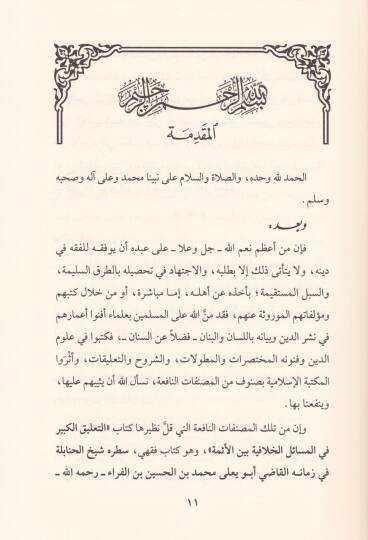 بسم الله الرحمن الرحيم
المقَدِمَة
الحمد لله وحده، والصلاة والسلام على نبينا محمد وعلى آله وصحبه
وسلم.
وبعد:
فإن من أعظم نعم الله ـ جل وعلا ـ على عبده أن يوفقه للفقه في
دينه، ولا يتأتى ذلك إلا بطلبه، والاجتهاد في تحصيله بالطرق السليمة،
والسبل المستقيمة؛ بأخذه عن أهله، إما مباشرة، أو من خلال كتبهم
ومؤلفاتهم الموروثة عنهم، فقد منَّ الله على المسلمين بعلماء أفنوا أعمارهم
في نشر الدين وبيانه باللسان والبنان ـ فضلاً عن السنان ـ، فكتبوا في علوم
الدين وفنونه المختصرات والمطولات، والشروح والتعليقات، وأثْرَوا
المكتبة الإسلامية بصنوف من المصنفات النافعة، نسأل الله أن يثيبهم عليها،
وينفعنا بها.
وإن من تلك المصنفات النافعة التي قلَّ نظيرها كتاب «التعليق الكبير
في المسائل الخلافية بين الأئمة»، وهو كتاب فقهي، سطره شيخ الحنابلة
في زمانه القاضي أبو يعلى محمد بن الحسين بن الفراء ـ رحمه الله ـ
١١